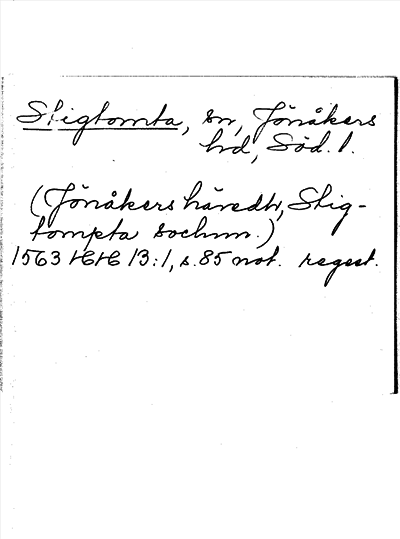 Stigtomta, sn, Jönåkers
hd, Söd. l.
(Jönåkers häredh, Stig-
tompta sochnn.)
1563 HH 13:1, s. 85 not. regest.